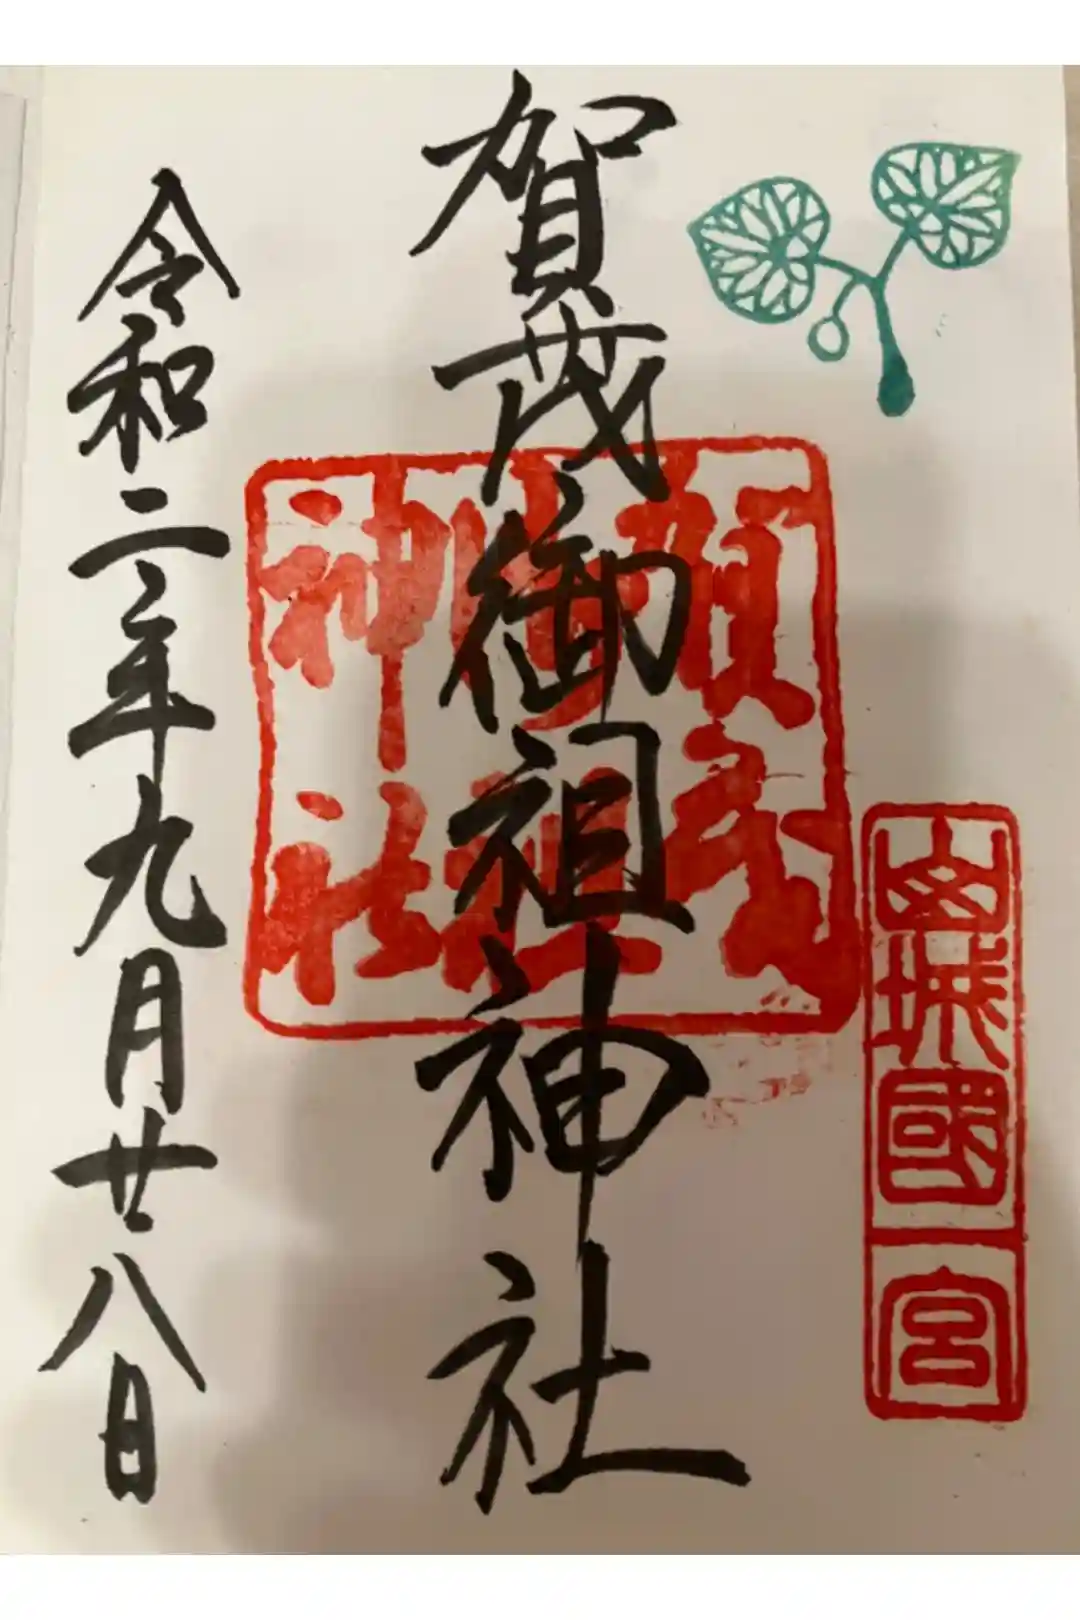 山城國一宮
賀茂御祖神社
賀茂
御祖
神社
令和二年九月廿八日